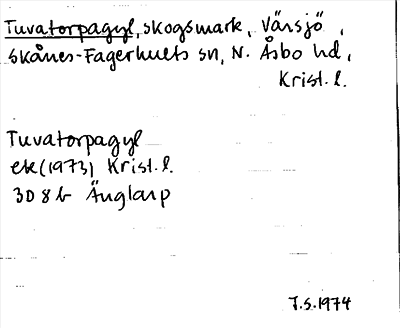 Tuvatorpagyl, skogsmark, Värsjö,
Skånes-Fagerhults sn, N. Åsbo hd,
Krist. l.
Tuvatorpagyl
ek (1973) Krist. l.
3D 8b Änglarp
7.5.1974